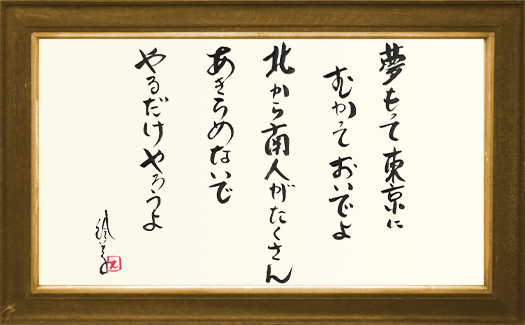 夢もって東京に
むかっておいでよ
北から南人がたくさん
あきらめないで
やるだけやろうよ